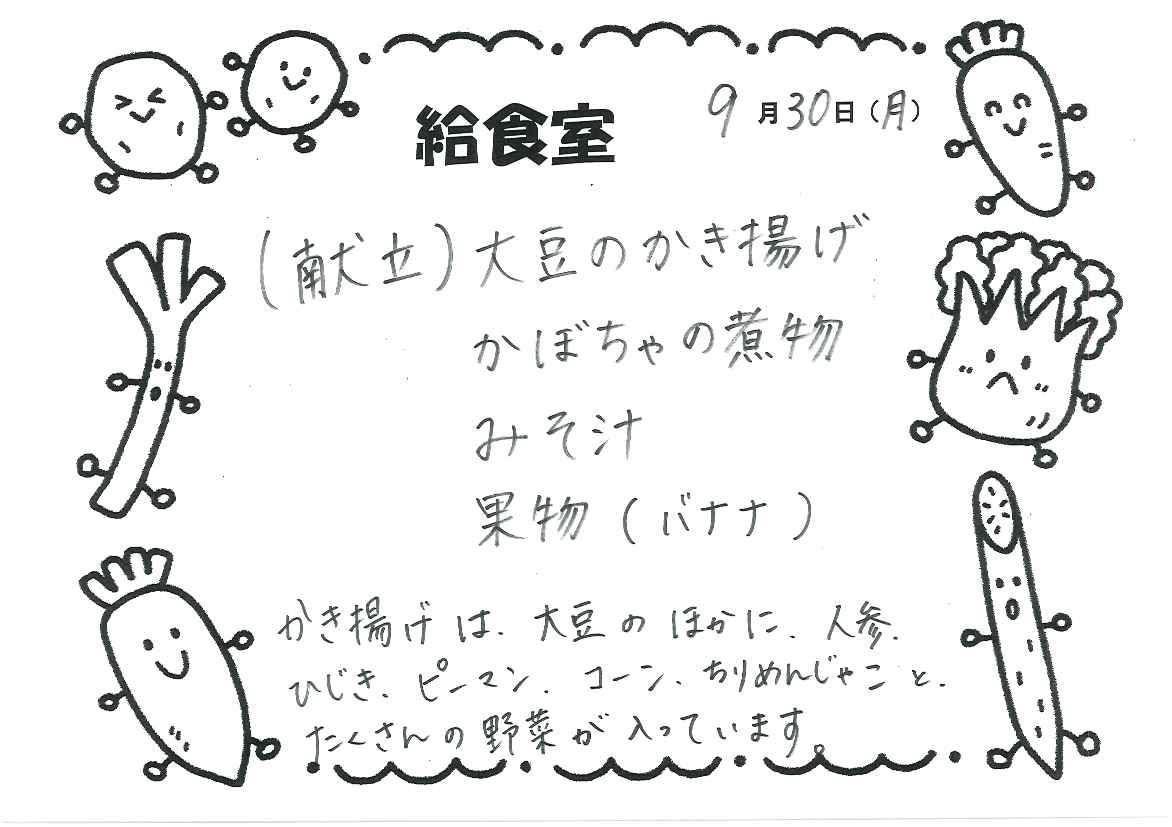 給食室
9月30日(月)
(献立)大豆のかき揚げ
かぼちゃの煮物
みそ汁
果物(バナナ)
かき揚げは、大豆のほかに、人参、
ひじき、ピーマン、コーン、ちりめんじゃこと、
たくさんの野菜が入っています。